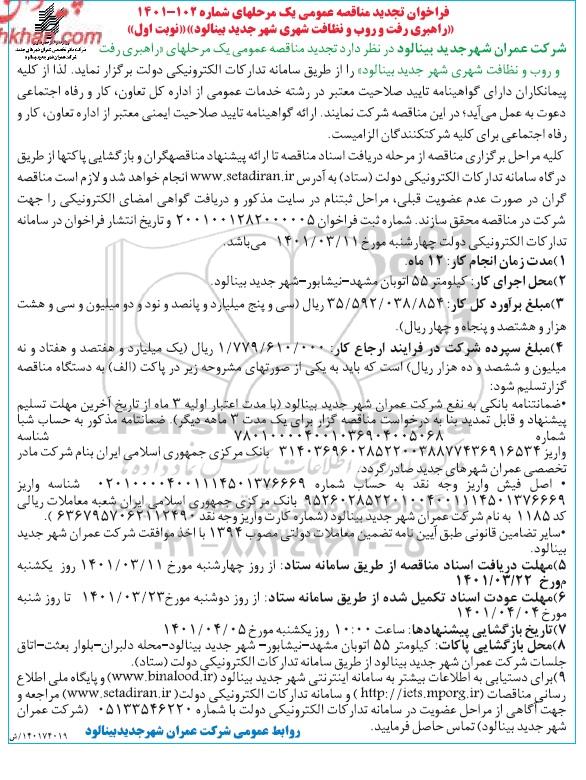 فراخوان تجدید مناقصه عمومی یک مرحلهای شماره ۱۰۲-۱۴۰۱
«راهبری رفت و روب و نظافت شهری شهر جدید بینالود» «(نوبت اول)»
khkhan.com
شرکت عمران شهرجدید بینالود در نظر دارد تجدید مناقصه عمومی یک مرحلهای «راهبری رفت
و روب و نظافت شهری شهر جدید بینالود» را از طریق سامانه تدارکات الکترونیکی دولت برگزار نماید. لذا از کلیه
پیمانکاران دارای گواهینامه تایید صلاحیت معتبر در رشته خدمات عمومی از اداره کل تعاون، کار و رفاه اجتماعی
دعوت به عمل می‌آید؛ در این مناقصه شرکت نمایند. ارائه گواهینامه تایید صلاحیت ایمنی معتبر از اداره تعاون، کار و
رفاه اجتماعی برای کلیه شرکتکنندگان الزامیست.
کلیه مراحل برگزاری مناقصه از مرحله دریافت اسناد مناقصه تا ارائه پیشنهاد مناقصهگران و بازگشایی پاکتها از طریق
درگاه سامانه تدارکات الکترونیکی دولت (ستاد) به آدرس www.setadiran.ir انجام خواهد شد و لازم است مناقصه
گران در صورت عدم عضویت قبلی، مراحل ثبتنام در سایت مذکور و دریافت گواهی امضای الکترونیکی را جهت
شرکت در مناقصه محقق سازند. شماره ثبت فراخوان ۲۰۰۱۰۰۱۲۸۲۰۰۰۰۰۵ و تاریخ انتشار فراخوان در سامانه
تدارکات الکترونیکی دولت چهارشنبه مورخ ۱۴۰۱/۰۳/۱۱ می‌باشد.
۱)مدت زمان انجام کار: ۱۲ ماه.
۲)محل اجرای کار: کیلومتر ۵۵ اتوبان مشهد-نیشابور-شهر جدید بینالود.
۳)مبلغ برآورد کل کار: ۳۵/۵۹۲/۰۳۸/۸۵۴ ریال (سی و پنج میلیارد و پانصد و نود و دو میلیون و سی و هشت
هزار و هشتصد و پنجاه و چهار ریال).
۴)مبلغ سپرده شرکت در فرایند ارجاع کار: ۱/۷۷۹/۶۱۰/۰۰۰ ریال (یک میلیارد و هفتصد و هفتاد و نه
میلیون و ششصد و ده هزار ریال) است که باید به یکی از صورتهای مشروحه زیر در پاکت (الف) به دستگاه مناقصه
گزارتسلیم شود:
•ضمانتنامه بانکی به نفع شرکت عمران شهر جدید بینالود (با مدت اعتبار اولیه ۳ ماه از تاریخ آخرین مهلت تسلیم
پیشنهاد و قابل تمدید بنا به درخواست مناقصه گزار برای یک مدت ۳ ماهه دیگر). ضمانتنامه مذکور به حساب شبا
شماره ۷۸۰۱۰۰۰۰۴۰۰۱۰۳۶۹۰۴۰۰۵۰۶۸ شناسه
واریز ۳۱۴۰۳۶۹۶۰۲۸۵۲۲۰۰۳۸۸۷۷۴۳۶۹۱۶۵۳۴ بانک مرکزی جمهوری اسلامی ایران بنام شرکت مادر
تخصصی عمران شهرهای جدید صادر گردد.
• اصل فیش واریز وجه نقد به حساب شماره ۰۲۰۱۰۰۰۰۴۰۰۱۱۱۴۵۰۱۳۷۶۶۶۹ شناسه واریز
۹۵۲۶۰۲۸۵۲۲۰۱۰۰۴۰۰۱۱۱۴۵۰۱۳۷۶۶۶۹ بانک مرکزی جمهوری اسلامی ایران شعبه معاملات ریالی
کد ۱۱۸۵ به نام شرکت عمران شهر جدید بینالود (شماره کارت واریز وجه نقد ۶۳۶۷۹۵۷۰۶۳۱۱۲۴۹۰ ).
•سایر تضامین قانونی طبق آیین نامه تضمین معاملات دولتی مصوب ۱۳۹۴ با اخذ موافقت شرکت عمران شهر جدید
بینالود.
۵)مهلت دریافت اسناد مناقصه از طریق سامانه ستاد: از روز چهارشنبه مورخ ۱۴۰۱/۰۳/۱۱ روز یکشنبه
مورخ ۱۴۰۱/۰۳/۲۲
۶)مهلت عودت اسناد تکمیل شده از طریق سامانه ستاد: از روز دوشنبه مورخ۱۴۰۱/۰۳/۲۳ تا روز شنبه
مورخ ۱۴۰۱/۰۴/۰۴
۷)تاریخ بازگشایی پیشنهادها: ساعت ۱۰:۰۰ روز یکشنبه مورخ ۱۴۰۱/۰۴/۰۵
۸)محل بازگشایی پاکات: کیلومتر ۵۵ اتوبان مشهد-نیشابور- شهر جدید بینالود-محله دلبران-بلوار بعثت-اتاق
جلسات شرکت عمران شهر جدید بینالود از طریق سامانه تدارکات الکترونیکی دولت (ستاد).
۹)برای دستیابی به اطلاعات بیشتر به سامانه اینترنتی شهر جدید بینالود (www.binalood.ir) و پایگاه ملی اطلاع
رسانی مناقصات (http://iets.mporg.ir ) و سامانه تدارکات الکترونیکی دولت( www.setadiran.ir) مراجعه و
جهت آگاهی از مراحل عضویت در سامانه تدارکات الکترونیکی دولت با شماره ۰۵۱۳۳۵۴۶۲۲۰ (شرکت عمران
شهر جدید بینالود) تماس حاصل فرمایید.
روابط عمومی شرکت عمران شهرجدیدبینالود
۱۴۰۱۷۴۰۱۹/ش